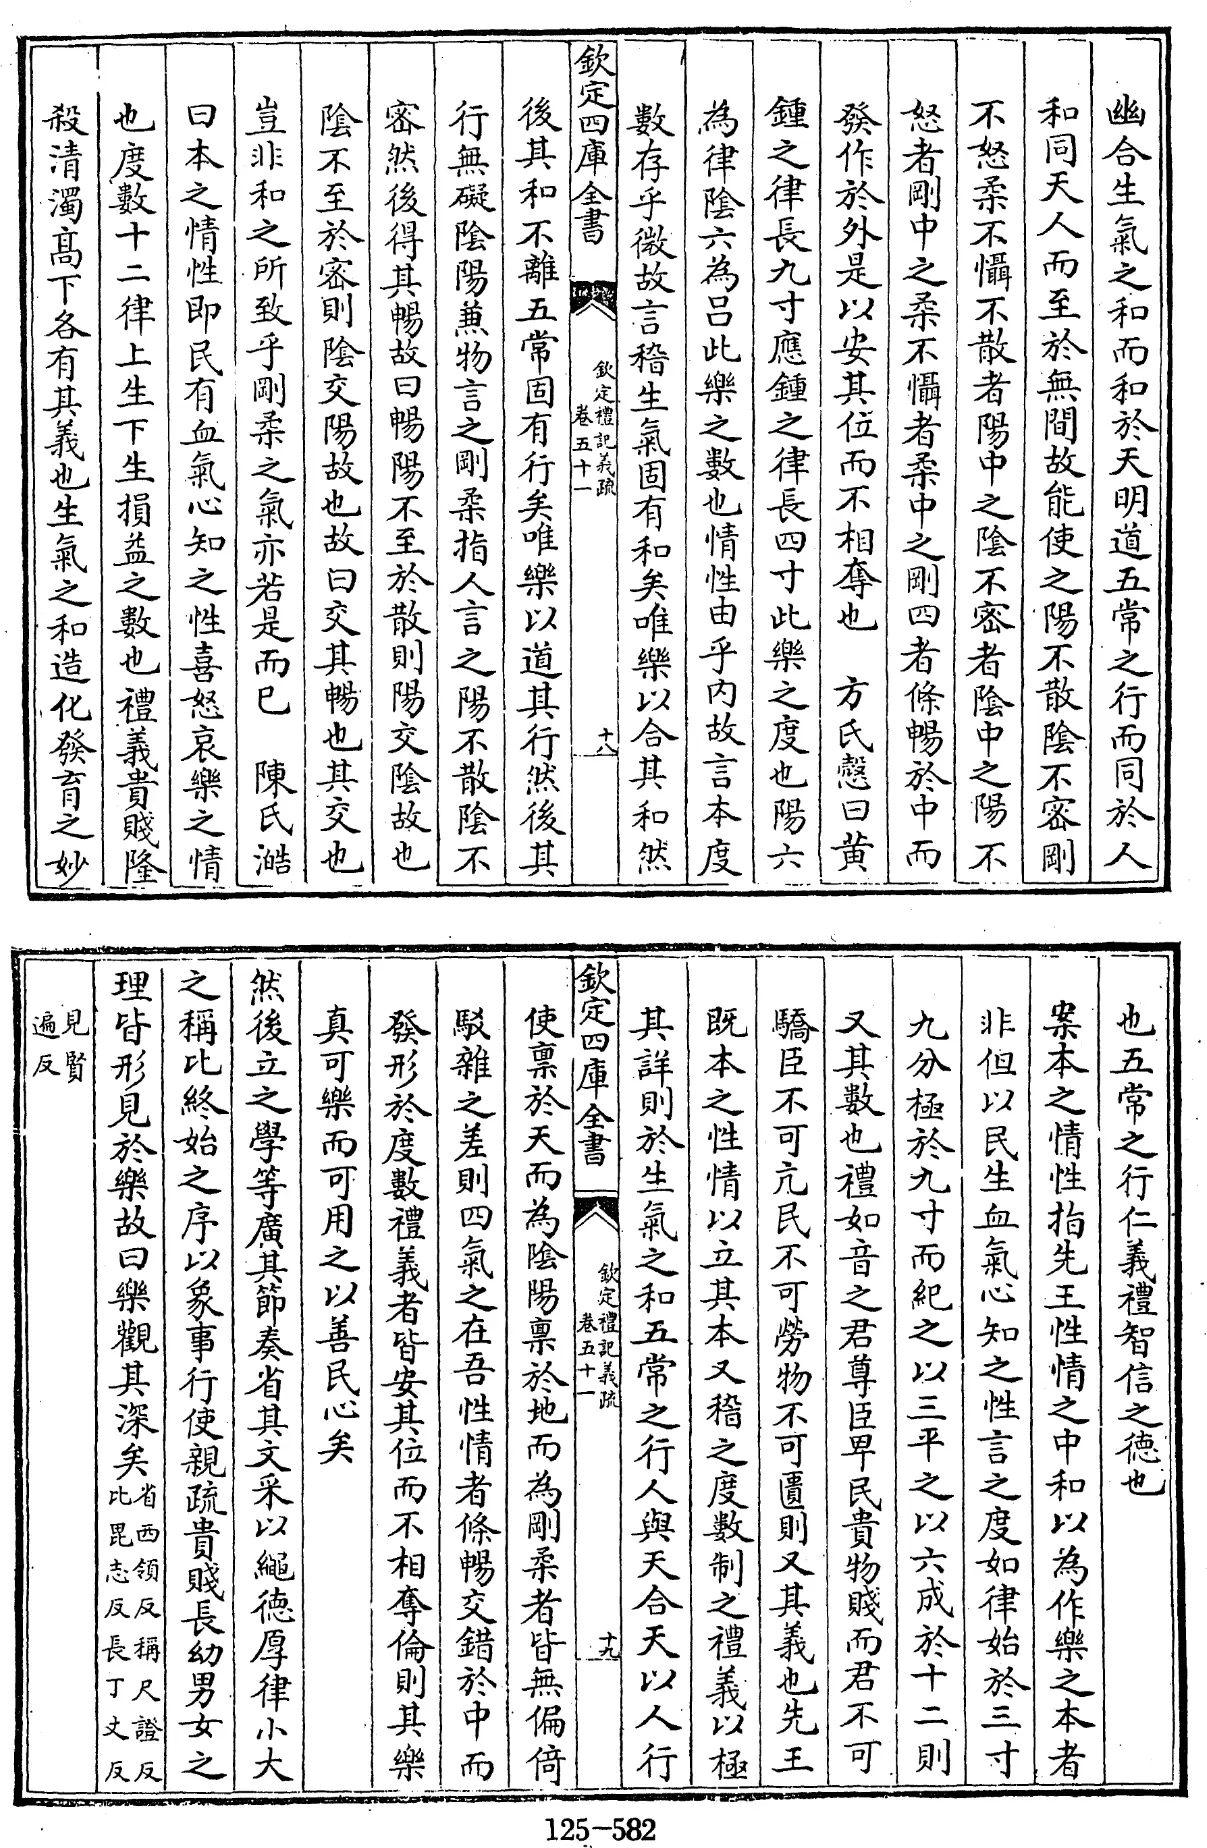 幽合生氣之和而和於天明道五常之行而同於人
和同天人而至於無間故能使之陽不散陰不密剛
不怒柔不懾不散者陽中之陰不密者陰中之陽不
怒者剛中之柔不懾者柔中之剛四者條暢於中而
發作於外是以安其位而不相奪也　方氏慤曰黄
鍾之律長九寸應鍾之律長四寸此樂之度也陽六
為律陰六為呂此樂之數也情性由乎内故言本度
數存乎微故言稽生氣固有和矣唯樂以合其和然
欽定四庫全書
欽定禮記義疏
卷五十一
十八
後其和不離五常固有行矣唯樂以道其行然後其
行無礙陰陽兼物言之剛柔指人言之陽不散陰不
密然後得其暢故曰暢陽不至於散則陽交陰故也
陰不至於密則陰交陽故也故曰交其暢也其交也
豈非和之所致乎剛柔之氣亦若是而已　陳氏澔
曰本之情性即民有血氣心知之性喜怒哀樂之情
也度數十二律上生下生損益之數也禮義貴賤隆
殺清濁高下各有其義也生氣之和造化發育之妙
也五常之行仁義禮智信之德也
案本之情性指先王性情之中和以為作樂之本者
非但以民生血氣心知之性言之度如律始於三寸
九分極於九寸而紀之以三平之以六成於十二則
又其數也禮如音之君尊臣卑民貴物賤而君不可
驕臣不可亢民不可勞物不可匱則又其義也先王
既本之性情以立其本又稽之度數制之禮義以極
其詳則於生氣之和五常之行人與天合天以人行
欽定四庫全書
欽定禮記義疏
卷五十一
十九
使稟於天而為陰陽稟於地而為剛柔者皆無偏倚
駁雜之差則四氣之在吾性情者條暢交錯於中而
發形於度數禮義者皆安其位而不相奪倫則其樂
真可樂而可用之以善民心矣
然後立之學等廣其節奏省其文采以繩德厚律小大
之稱比終始之序以象事行使親疏貴賤長幼男女之
理皆形見於樂故曰樂觀其深矣省西領反稱尺證反
比毘志反長丁丈反
見賢
遍反
125-582